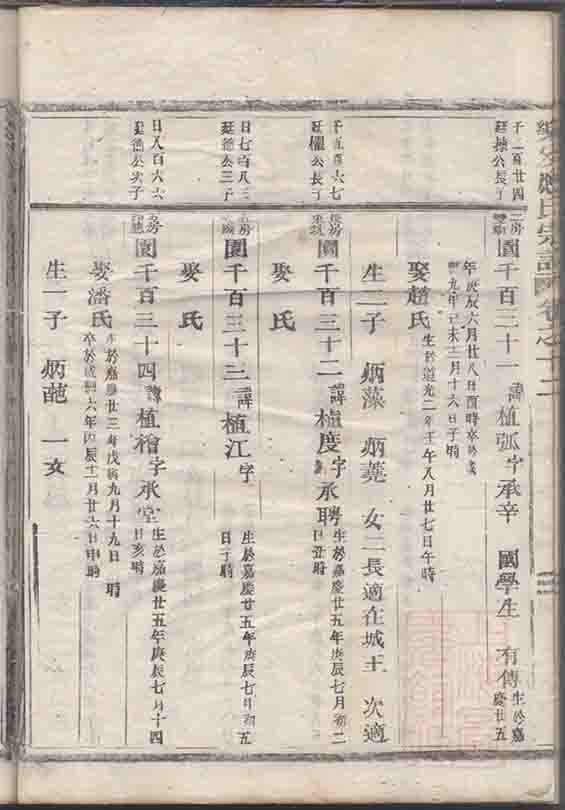 氏宗譜 卷之十二
千一百廿四
廷操公長子
二房
國千百三十一 諱植弧字承辛 國學生 有傳 生於嘉慶廿五
年庚辰六月廿八日酉時卒於咸
豐九年己未十二月十六日子時
娶趙氏 生於道光二年壬午八月廿七日午時
生二子 炳藻 炳蕘 女二長適在城王 次適
千五百六七
廷櫂公長子
長房
國千百三十二 諱植度字承聘 生於嘉慶廿五年庚辰七月初二
日丑時
娶氏
日七百八三
廷德公三子
五房
國千百三十三 諱植江 字 生於嘉慶廿五年庚辰七月初五
日子時
娶氏
日八百六六
廷德公次子
五房
國千百三十四 諱植檜字承堂 生於嘉慶廿五年庚辰七月十四
日亥時
娶潘氏 生於嘉慶廿三年戊寅九月十九日 時
卒於咸豐六年丙辰十二月廿六日申時
生一子 炳葩 一女